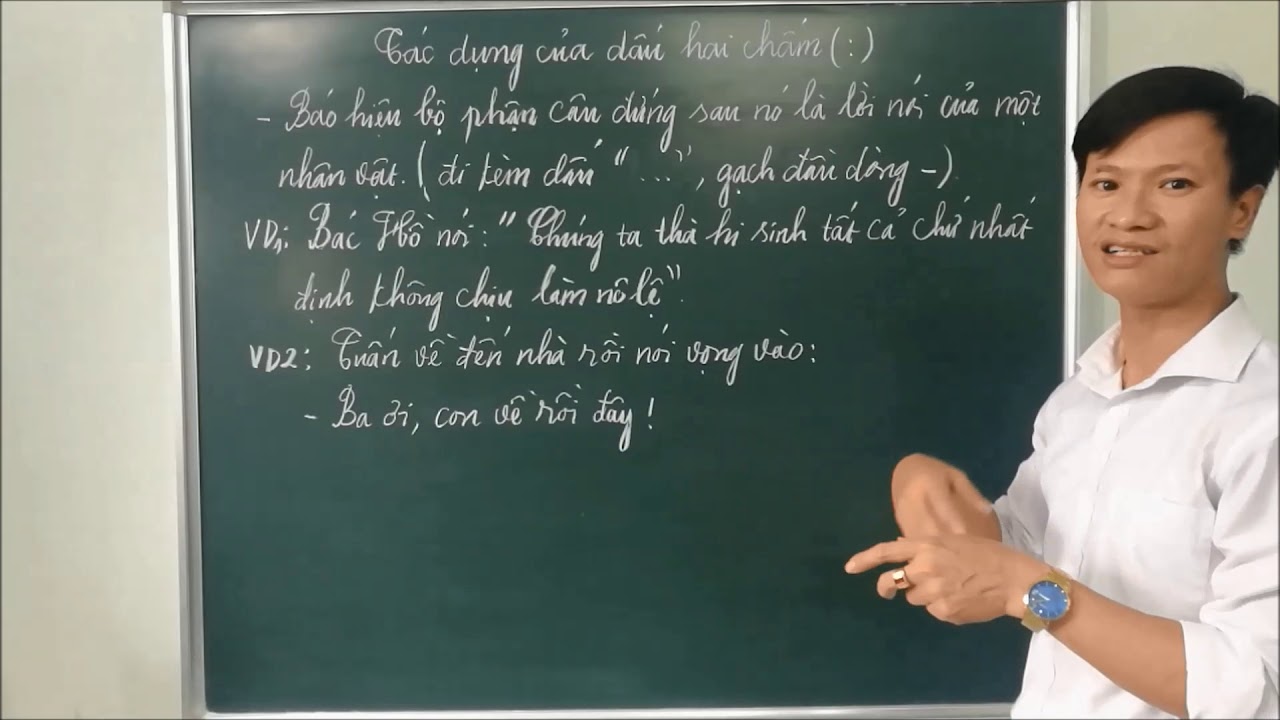 Tác dụng của dấu hai chấm (:)
- Báo hiệu bộ phận câu đứng sau nó là lời nói của một
nhân vật. ( đi kèm dấu " ... ", gạch đầu dòng -)
VD1: Bác Hồ nói : " Chúng ta thà hi sinh tất cả chứ nhất
định không chịu làm nô lệ ".
VD2 : Tuấn về đến nhà rồi nói vọng vào :
- Ba ơi, con về rồi đây !